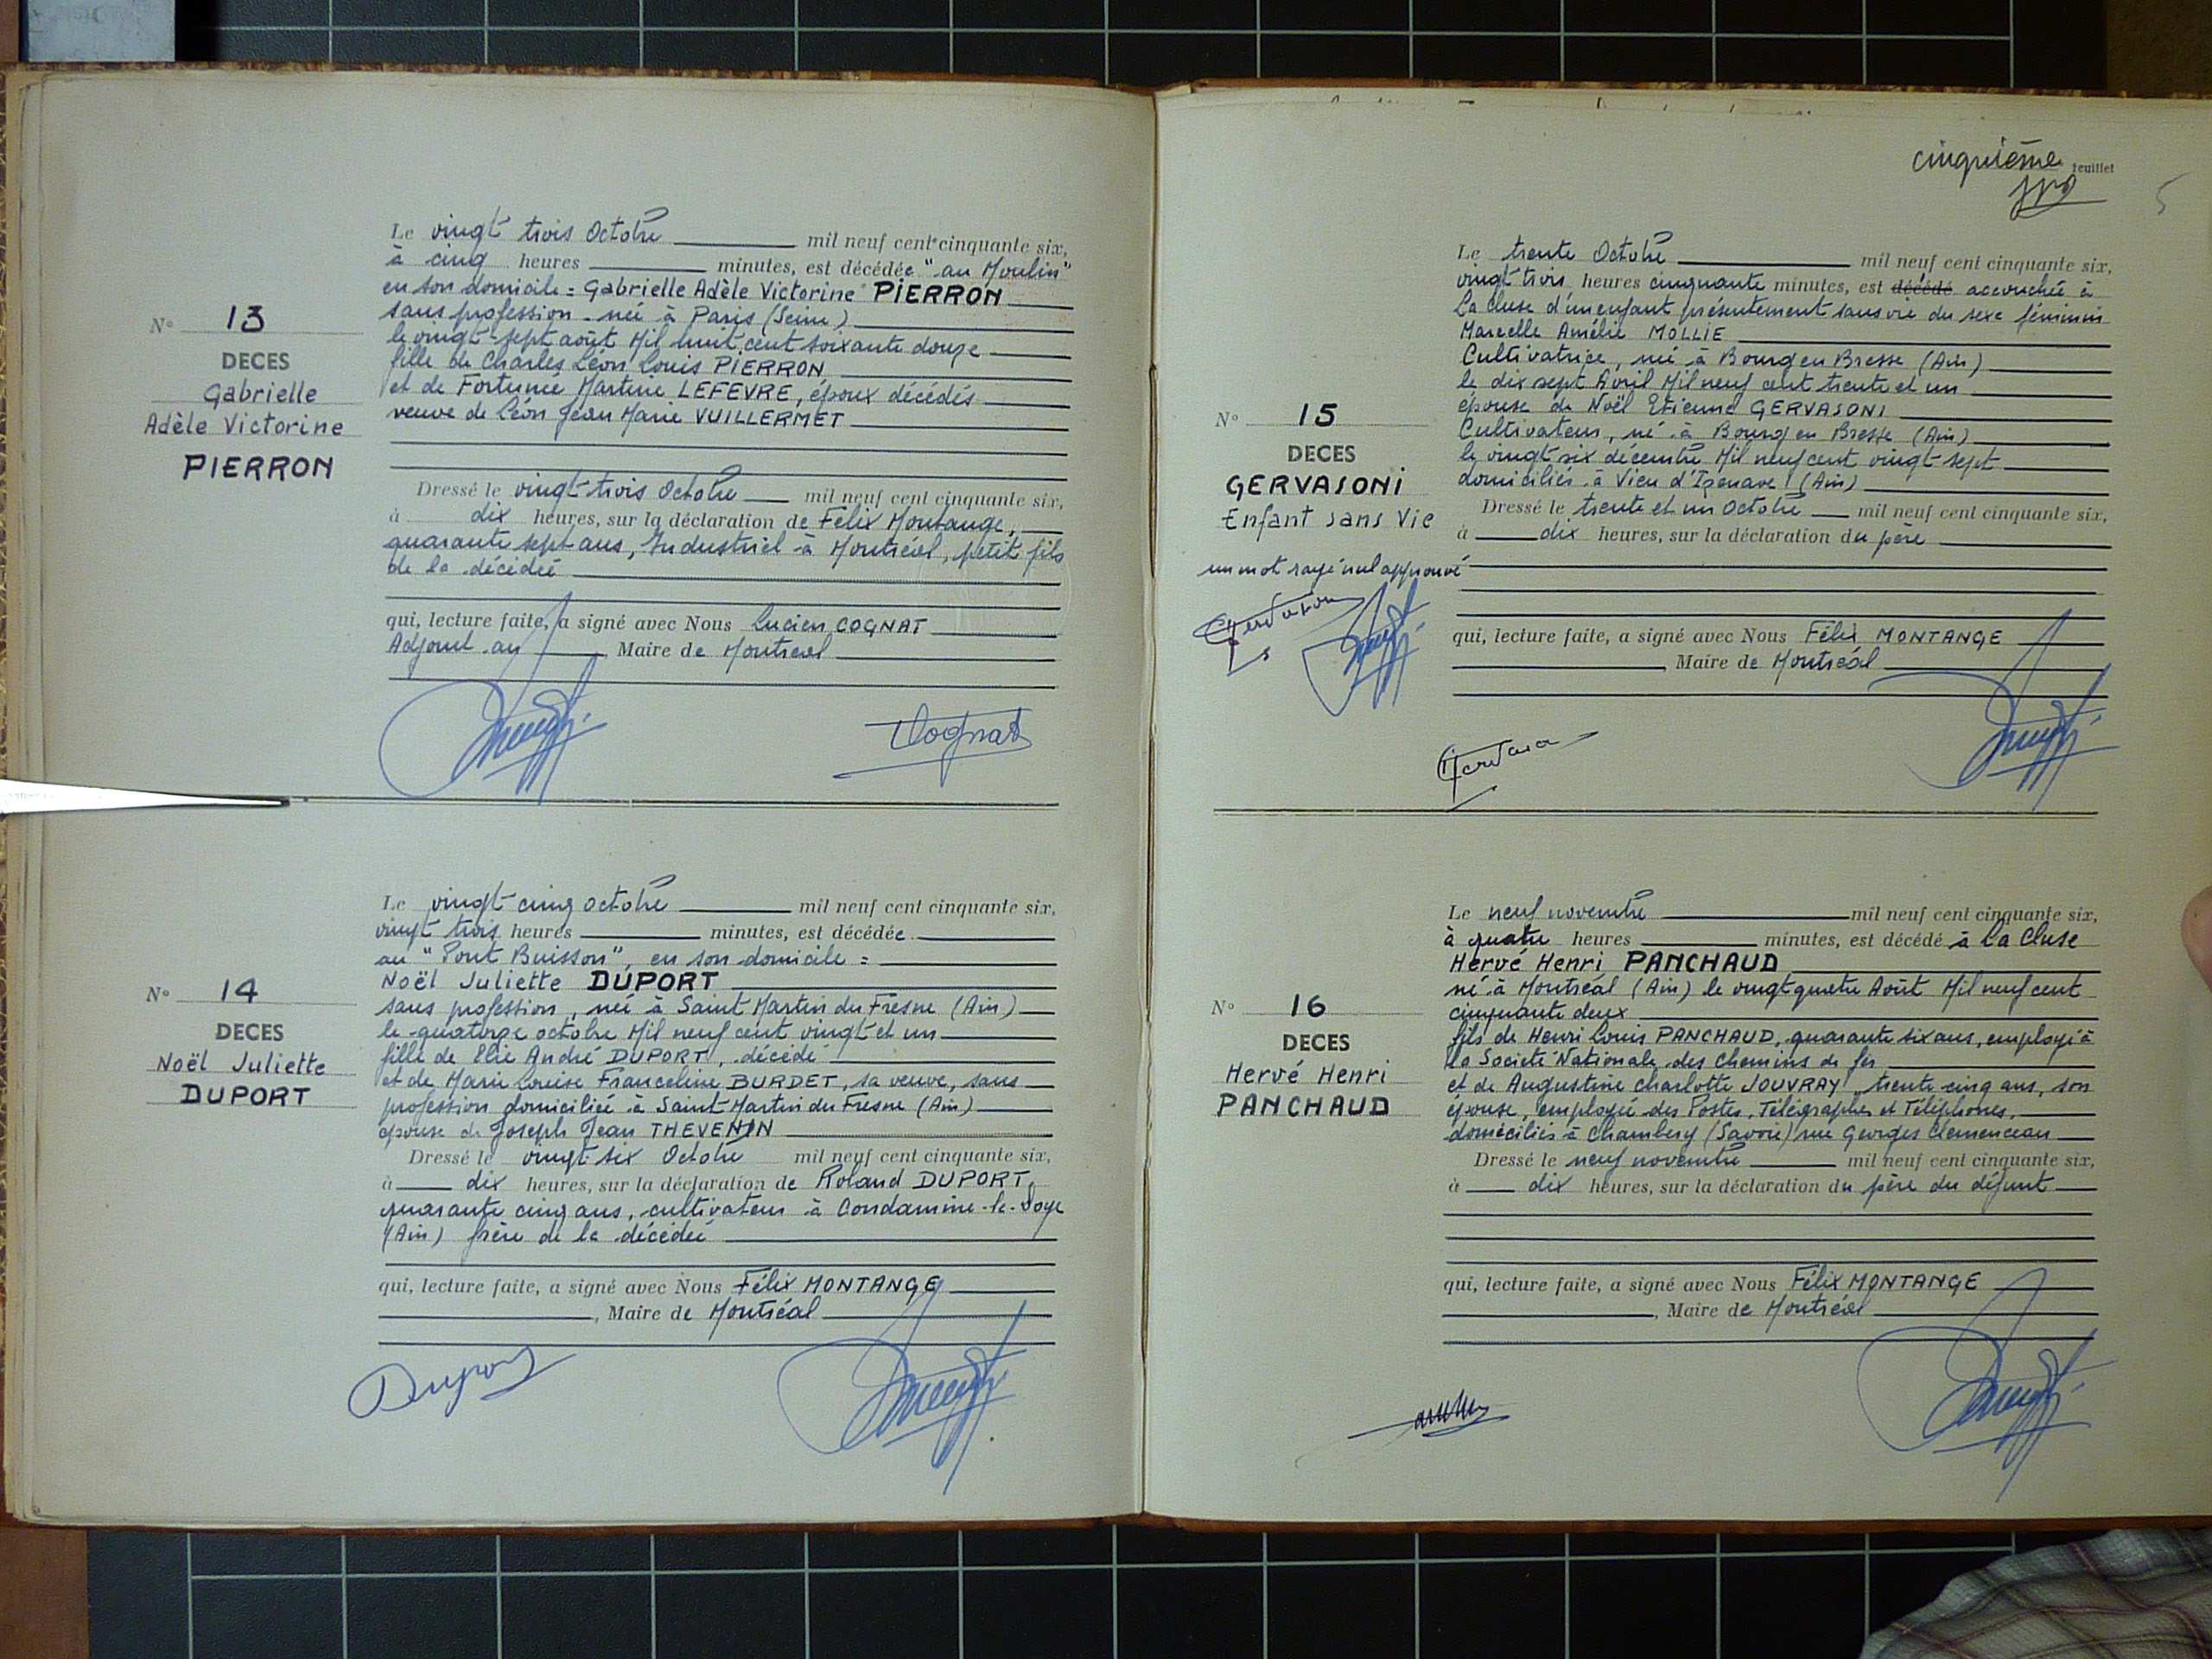 Le vingt trois Octobre mil neuf cent cinquante six,
à cinq heures minutes, est décédée "au Moulin"
en son domicile = Gabrielle Adèle Victorine PIERRON
sans profession - née à Paris (Seine)
le vingt-sept août Mil huit cent soixante douze
fille de Charles Léon Louis PIERRON
et de Fortunée Martine LEFEVRE, époux décédés
veuve de Léon Jean Marie VUILLERMET
N° 13
DECES
Gabrielle
Adèle Victorine
PIERRON
Dressé le vingt-trois Octobre mil neuf cent cinquante six,
à dix heures, sur la déclaration de Félix Montange,
quarante sept ans, Industriel à Montréal, petit fils
de la décédée
qui, lecture faite, a signé avec Nous Lucien COGNAT
Adjoint au Maire de Montréal
Cognat
Le vingt cinq octobre mil neuf cent cinquante six,
vingt trois heures minutes, est décédée
au "Pont Buisson", en son domicile =
Noël Juliette DUPORT
sans profession, née à Saint Martin du Fresne (Ain)
le quatorze octobre Mil neuf cent vingt et un
fille de Elie André DUPORT, décédé
et de Marie Louise Franceline BURDET, sa veuve, sans
profession domiciliée à Saint-Martin du Fresne (Ain)
épouse de Joseph Jean THEVENIN
N° 14
DECES
Noël Juliette
DUPORT
Dressé le vingt six Octobre mil neuf cent cinquante six,
à dix heures, sur la déclaration de Roland DUPORT,
quarante cinq ans, cultivateur à Condamine-la-Doye
(Ain) frère de la décédée
qui, lecture faite, a signé avec Nous Félix MONTANGE
, Maire de Montréal
Duport
cinquième feuillet
5
Le trente Octobre mil neuf cent cinquante six,
vingt trois heures cinquante minutes, est décédé accouchée à
La Cluse d'un enfant présentement sans vie du sexe féminin
Marcelle Amélie MOLLIE
Cultivatrice, née à Bourg en Bresse (Ain)
le dix sept Avril Mil neuf cent trente et un
épouse de Noël Etienne GERVASONI
Cultivateur, né à Bourg en Bresse (Ain)
le vingt six décembre Mil neuf cent vingt sept
domiciliés à Vieu d'Izenave (Ain)
N° 15
DECES
GERVASONI
Enfant sans Vie
Dressé le trente et un Octobre mil neuf cent cinquante six,
à dix heures, sur la déclaration du père
un mot rayé nul approuvé
qui, lecture faite, a signé avec Nous Félix MONTANGE
, Maire de Montréal
Le neuf novembre mil neuf cent cinquante six,
à quatre heures minutes, est décédé à La Cluse
Hervé Henri PANCHAUD
né à Montréal (Ain) le vingt quatre Août Mil neuf cent
cinquante deux
fils de Henri Louis PANCHAUD, quarante six ans, employé à
la Société Nationale des Chemins de fer
et de Augustine Charlotte JOUVRAY trente cinq ans, son
épouse, employée des Postes, Télégraphes et Téléphones,
domiciliés à Chambéry (Savoie) rue Georges Clemenceau
N° 16
DECES
Hervé Henri
PANCHAUD
Dressé le neuf novembre mil neuf cent cinquante six,
à dix heures, sur la déclaration du père du défunt
qui, lecture faite, a signé avec Nous Félix MONTANGE
, Maire de Montréal